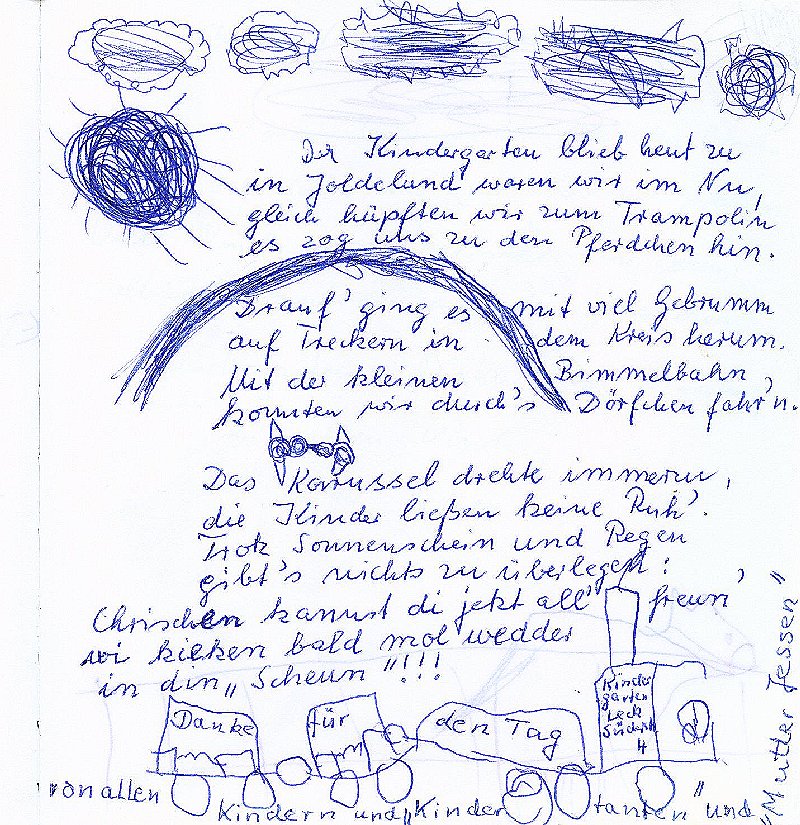 Der Kindergarten blieb heut zu
in Joldelund waren wir im Nu,
gleich hüpften wir zum Trampolin
es zog uns zu den Pferdchen hin.
Drauf' ging es mit viel Gebrumm
auf Treckern in dem Kreis herum.
Mit der kleinen Bimmelbahn,
konnten wir durch's Dörfchen fahr'n.
Das Karussel drehte immerzu,
die Kinder ließen keine Ruh'.
Trotz Sonnenschein und Regen
gibt's nichts zu überlegen:
Chrischen kannst di jetzt all' freun'
wi kieken bald mol wedder
in din „Scheun"!!!
Danke für den Tag
Kinder
garten
Leck
Süderstr
4
von allen Kindern und „Kindertanten" und
„Mutter Jessen"